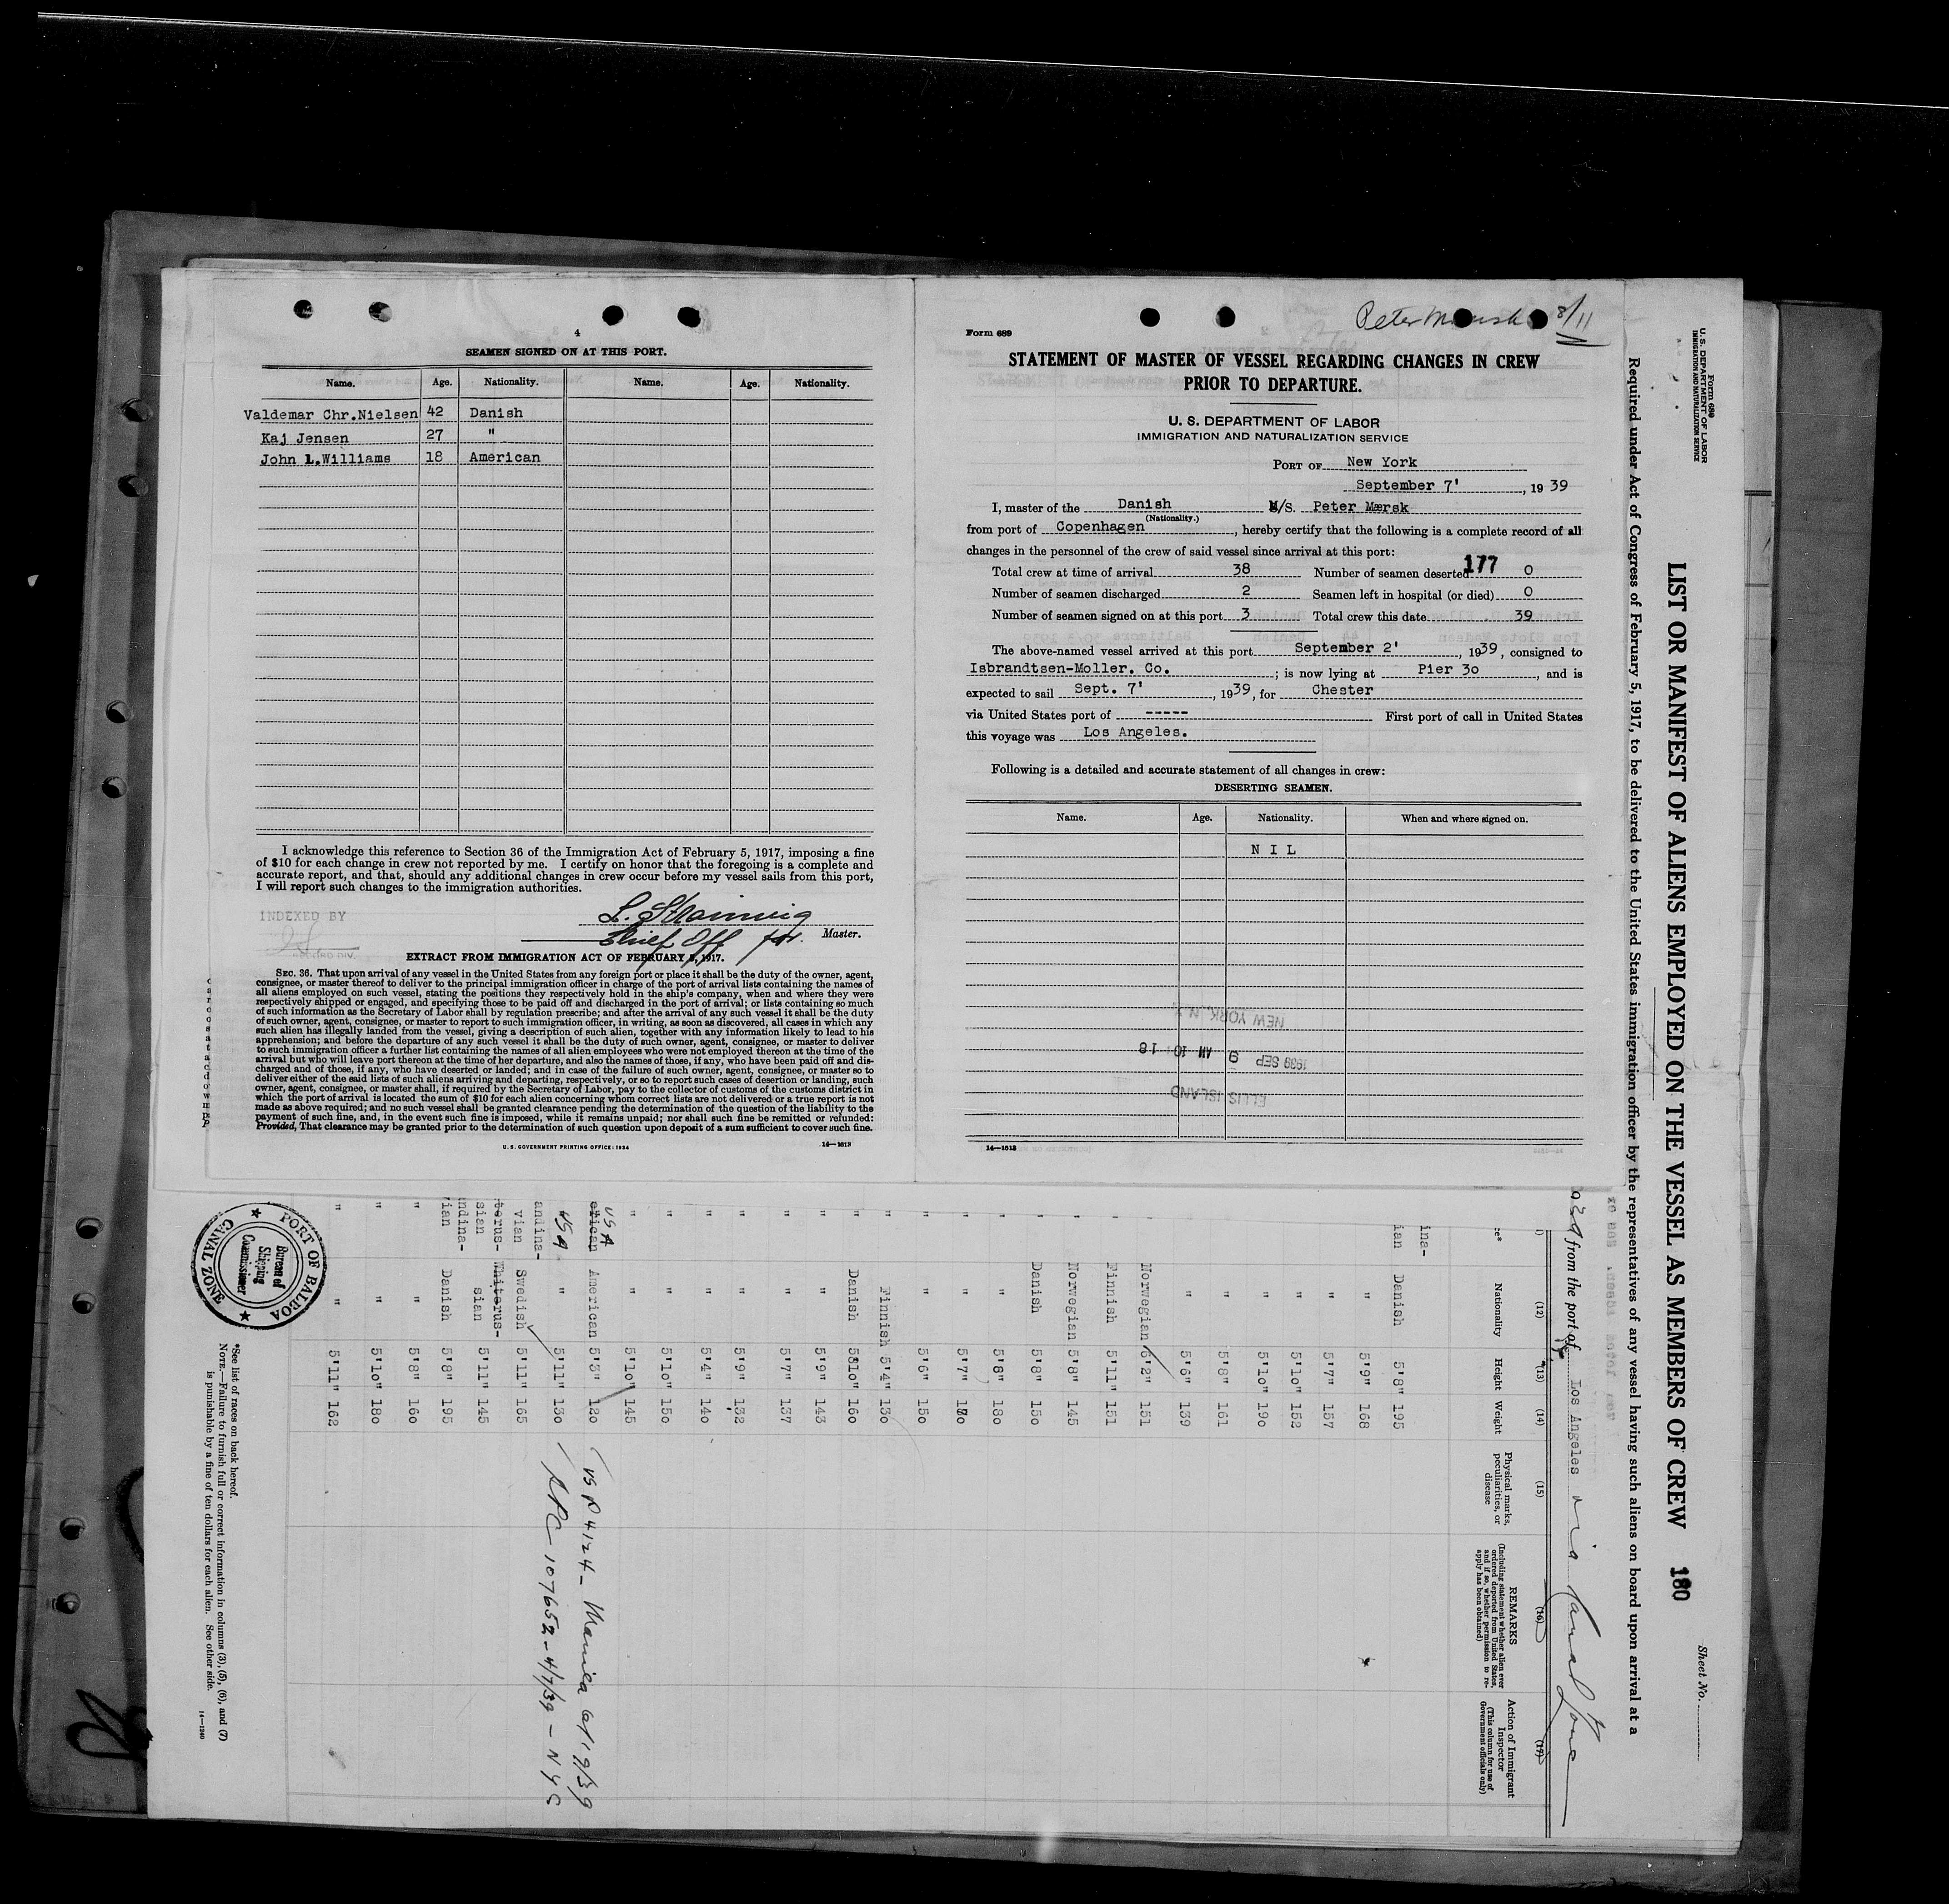 4
SEAMEN SIGNED ON AT THIS PORT.
Name. Age. Nationality. Name. Age. Nationality.
Valdemar Chr.Nielsen 42 Danish
Kaj Jensen 27 "
John L.Williams 18 American
I acknowledge this reference to Section 36 of the Immigration Act of February 5, 1917, imposing a fine
of $10 for each change in crew not reported by me. I certify on honor that the foregoing is a complete and
accurate report, and that, should any additional changes in crew occur before my vessel sails from this port,
I will report such changes to the immigration authorities.
INDEXED BY
Chief Off for. Master.
EXTRACT FROM IMMIGRATION ACT OF FEBRUARY 5, 1917.
SEC. 36. That upon arrival of any vessel in the United States from any foreign port or place it shall be the duty of the owner, agent,
consignee, or master thereof to deliver to the principal immigration officer in charge of the port of arrival lists containing the names of
all aliens employed on such vessel, stating the positions they respectively hold in the ship's company, when and where they were
respectively shipped or engaged, and specifying those to be paid off and discharged in the port of arrival; or lists containing so much
of such information as the Secretary of Labor shall by regulation prescribe; and after the arrival of any such vessel it shall be the duty
of such owner, agent, consignee, or master to report to such immigration officer, in writing, as soon as discovered, all cases in which any
such alien has illegally landed from the vessel, giving a description of such alien, together with any information likely to lead to his
apprehension; and before the departure of any such vessel it shall be the duty of such owner, agent, consignee, or master to deliver
to such immigration officer a further list containing the names of all alien employees who were not employed thereon at the time of the
arrival but who will leave port thereon at the time of her departure, and also the names of those, if any, who have been paid off and dis-
charged and of those, if any, who have deserted or landed; and in case of the failure of such owner, agent, consignee, or master so to
deliver either of the said lists of such aliens arriving and departing, respectively, or so to report such cases of desertion or landing, such
owner, agent, consignee, or master shall, if required by the Secretary of Labor, pay to the collector of customs of the customs district in
which the port of arrival is located the sum of $10 for each alien concerning whom correct lists are not delivered or a true report is not
made as above required; and no such vessel shall be granted clearance pending the determination of the question of the liability to the
payment of such fine, and, in the event such fine is imposed, while it remains unpaid; nor shall such fine be remitted or refunded:
Provided, That clearance may be granted prior to the determination of such question upon deposit of a sum sufficient to cover such fine.
U. S. GOVERNMENT PRINTING OFFICE: 1934 14—1613
Peter Mærsk 8/11
Form 689
STATEMENT OF MASTER OF VESSEL REGARDING CHANGES IN CREW
PRIOR TO DEPARTURE.
U. S. DEPARTMENT OF LABOR
IMMIGRATION AND NATURALIZATION SERVICE
PORT OF New York
September 7' , 19 39
I, master of the Danish M/S. Peter Mærsk
(Nationality.)
from port of Copenhagen , hereby certify that the following is a complete record of all
changes in the personnel of the crew of said vessel since arrival at this port:
177
Total crew at time of arrival 38 Number of seamen deserted 0
Number of seamen discharged 2 Seamen left in hospital (or died) 0
Number of seamen signed on at this port 3 Total crew this date 39
The above-named vessel arrived at this port September 2' , 1939, consigned to
Isbrandtsen-Moller. Co. ; is now lying at Pier 3o , and is
expected to sail Sept. 7' , 1939, for Chester
via United States port of ----- First port of call in United States
this voyage was Los Angeles.
Following is a detailed and accurate statement of all changes in crew:
DESERTING SEAMEN.
Name. Age. Nationality. When and where signed on.
N I L
NEW YORK N.Y.
1939 SEP 9 AM 10 18
ELLIS ISLAND
14—1613
Form 689
U. S. DEPARTMENT OF LABOR
IMMIGRATION AND NATURALIZATION SERVICE
Sheet No.
LIST OR MANIFEST OF ALIENS EMPLOYED ON THE VESSEL AS MEMBERS OF CREW 180
Required under Act of Congress of February 5, 1917, to be delivered to the United States immigration officer by the representatives of any vessel having such aliens on board upon arrival at a
from the port of Los Angeles via Canal Zone
(12) (13) (14) (15) (16) (17)
Nationality Height Weight Physical marks, peculiarities, or disease REMARKS (Including statement whether alien ever ordered deported from United States, and if so, whether permission to re-apply has been obtained) Action of Immigrant Inspector (This column for use of Government officials only)
ina-
ian Danish 5'8" 195
" 5'9" 168
" 5'7" 157
" 5'1o" 152
" 5'1o" 19o
" 5'8" 161
" 5'6" 139
Norwegian 6'2" 151
Finnish 5'11" 151
Norwegian 5'8" 145
Danish 5'8" 15o
" " 5'8" 18o
" " 5'7"
" " 5'6" 15o
Finnish 5'4" 15o
Danish 16o
" " 5'9" 143
" " 5'7" 137
" " 5'9" 132
" " 5'4" 14o
" " 5'1o" 15o
" " 5'1o" 145
USA erican American 5'3" 12o USP 4124 - Manila
USA " 5'11" 13o SPC 107652 - 4/7/39 - NYC
andina-
vian Swedish 5'11" 165
terus- Whiterus-
sian sian 5'11" 145
ndina-
vian Danish 5'8" 195
" " 5'8" 16o
" " 5'1o" 18o
" " 5'11" 162
PORT OF BALBOA
CANAL ZONE
Bureau of
Shipping
Commissioner
*See list of races on back hereof.
NOTE.—Failure to furnish full or correct information in columns (3), (5), (6), and (7)
is punishable by a fine of ten dollars for each alien. See other side.
14—1240